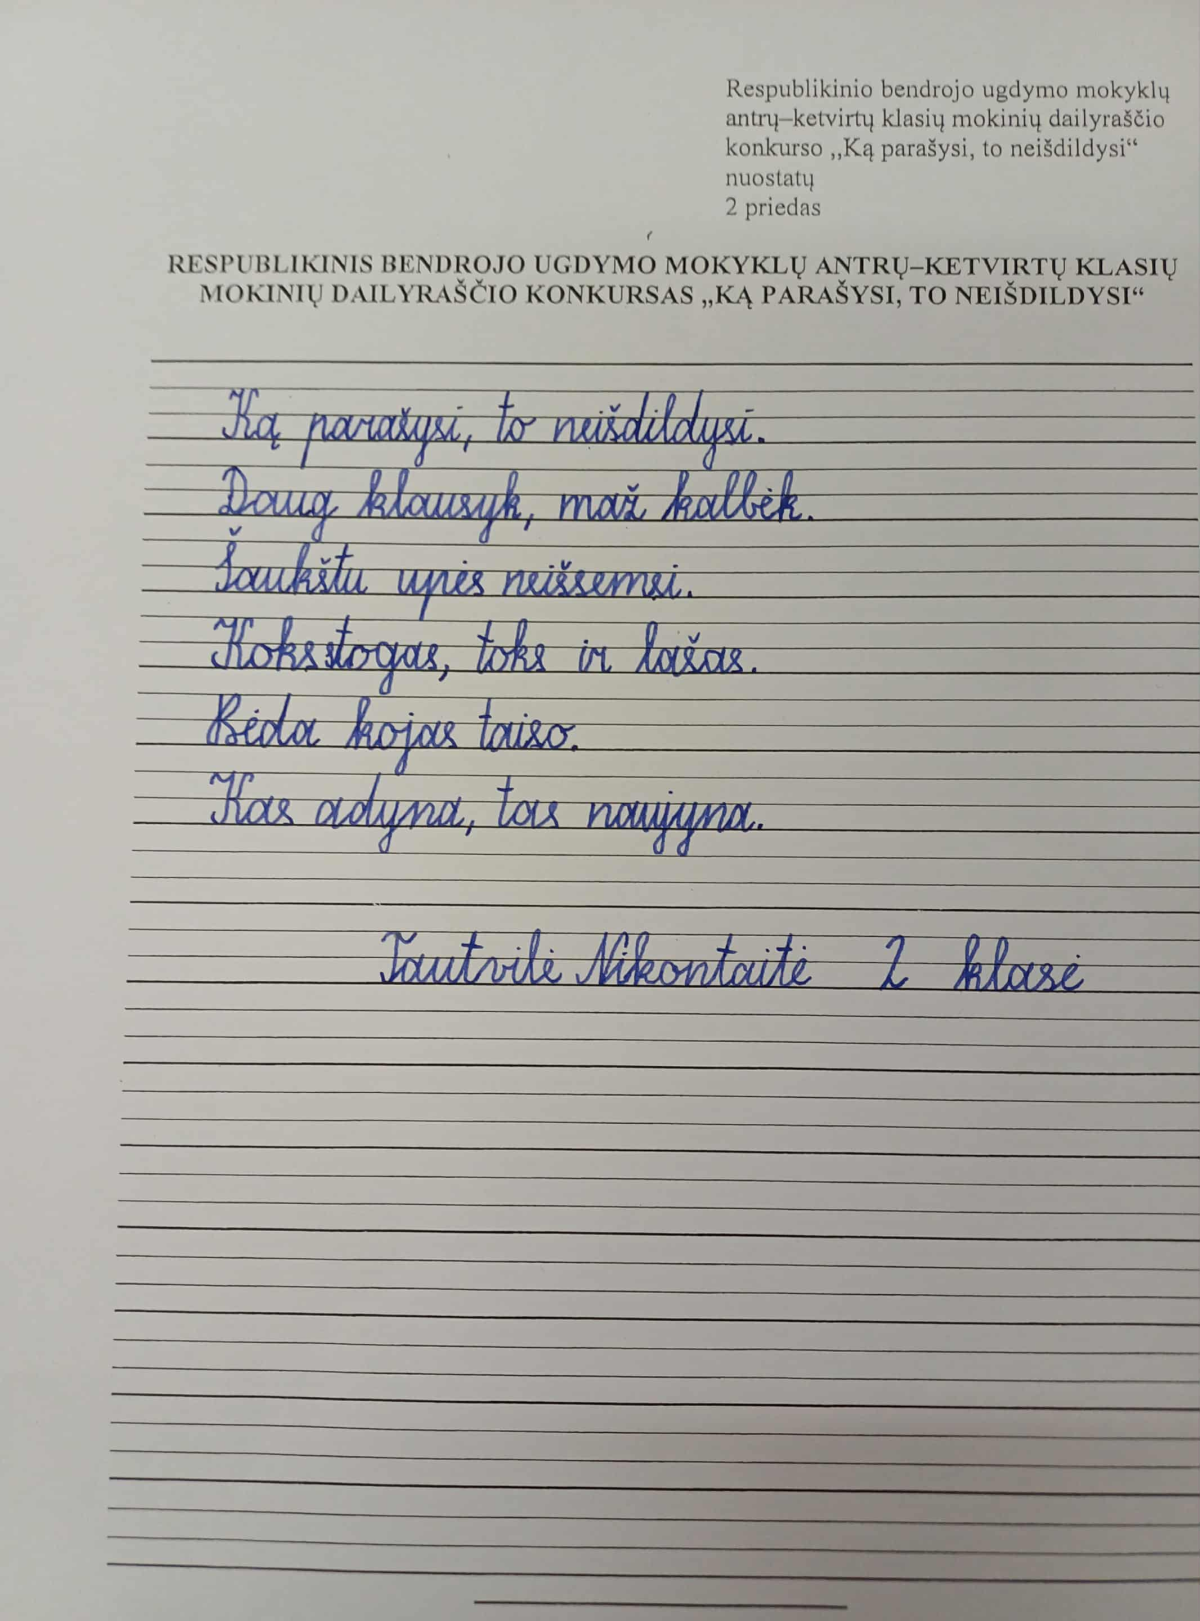 Respublikinio bendrojo ugdymo mokyklų
antrų–ketvirtų klasių mokinių dailyraščio
konkurso „Ką parašysi, to neišdildysi“
nuostatų
2 priedas
RESPUBLIKINIS BENDROJO UGDYMO MOKYKLŲ ANTRŲ–KETVIRTŲ KLASIŲ
MOKINIŲ DAILYRAŠČIO KONKURSAS „KĄ PARAŠYSI, TO NEIŠDILDYSI“
Ką parašysi, to neišdildysi.
Daug klausyk, maž kalbėk.
Šaukštu upės neišsemsi.
Koks stogas, toks ir lašas.
Bėda kojas taiso.
Kas adyna, tas naujyna.
Tautvilė Nikontaitė 2 klasė